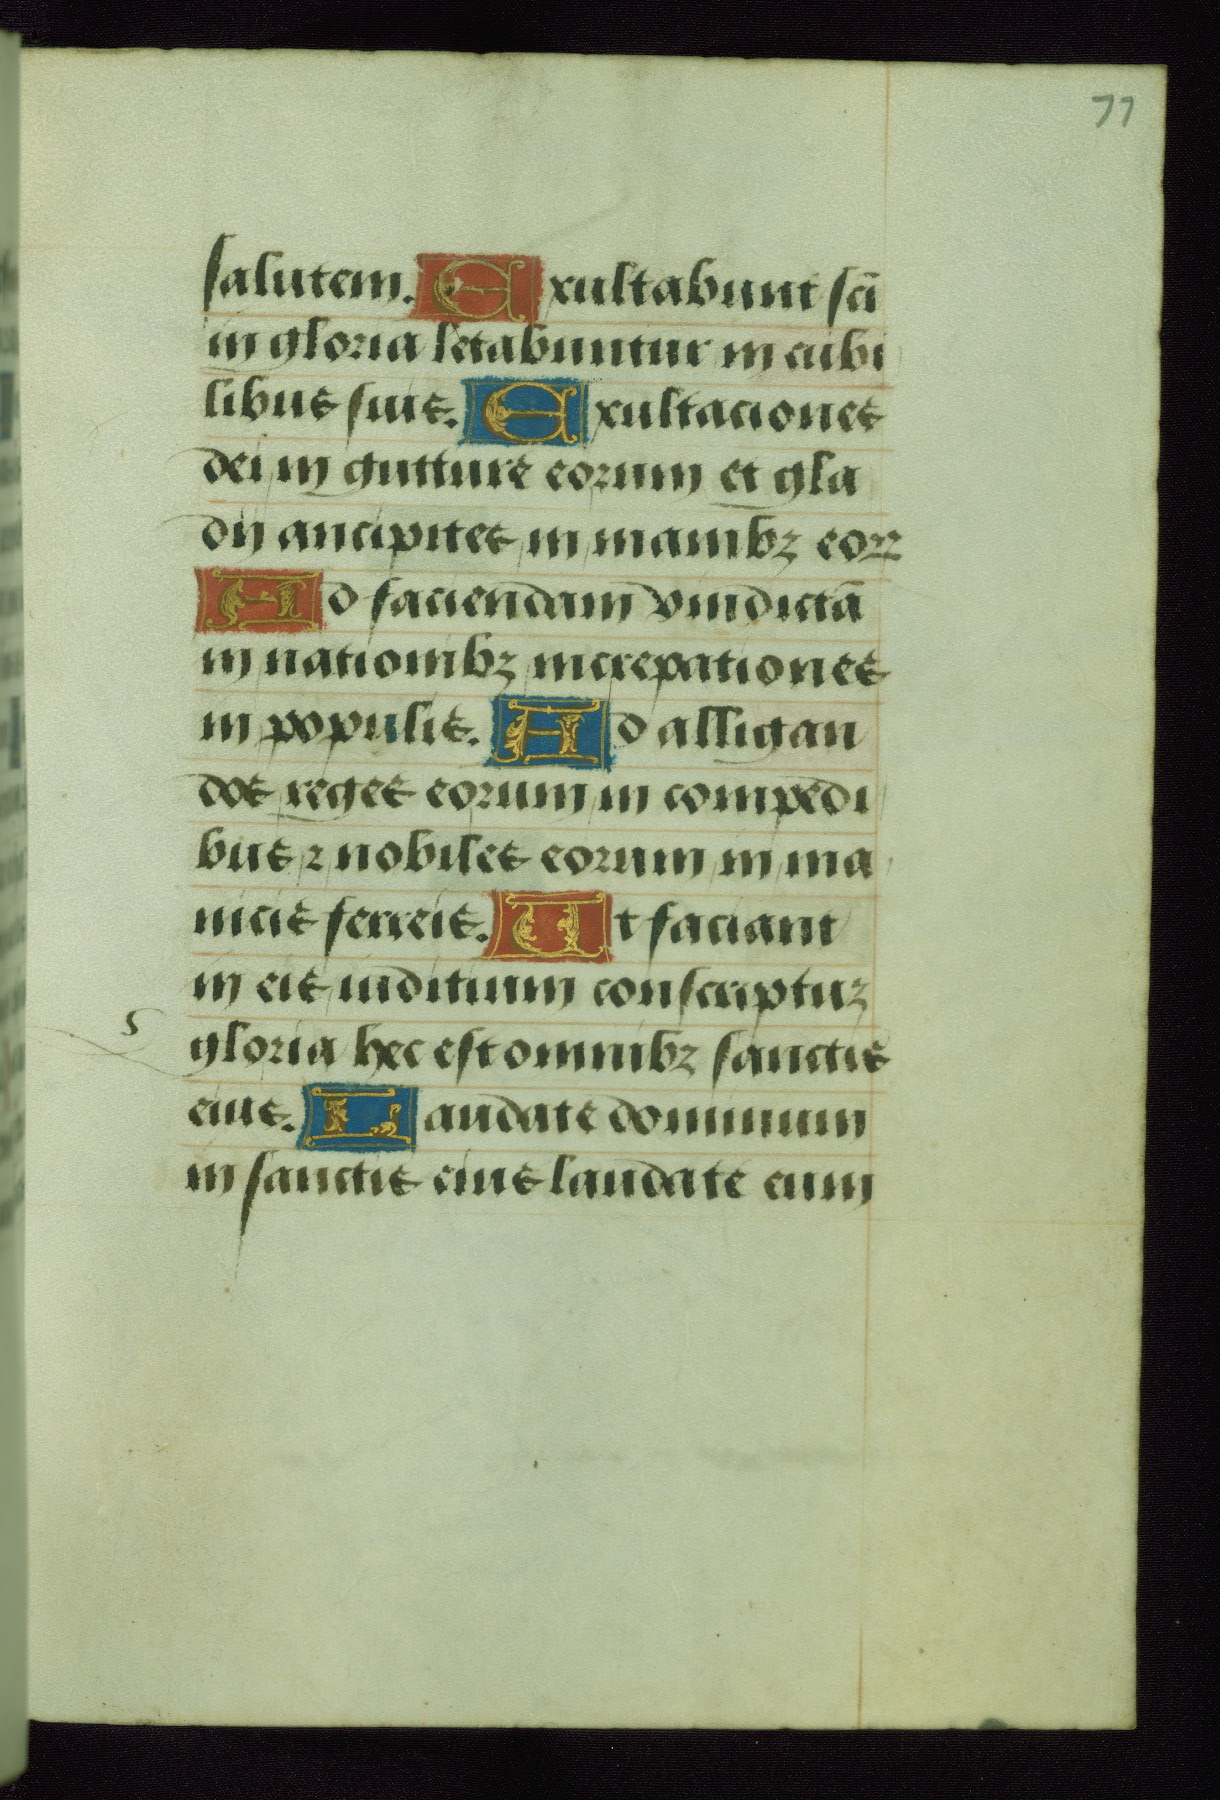 77
salutem. Exultabunt scī
in gloria letabuntur in cubi
libus suis. Exultaciones
dei in gutture eorum et gla
dij ancipites in manibꝫ eoꝝ
Ad faciendam vindictā
in nationibꝫ increpationes
in populis. Ad alligan
dos reges eorum in compedi
bus ⁊ nobiles eorum in ma
nicis ferreis. Ut faciant
in eis iuditium conscriptuꝫ
gloria hec est omnibꝫ sanctis
eius. Laudate dominum
in sanctis eius laudate eum